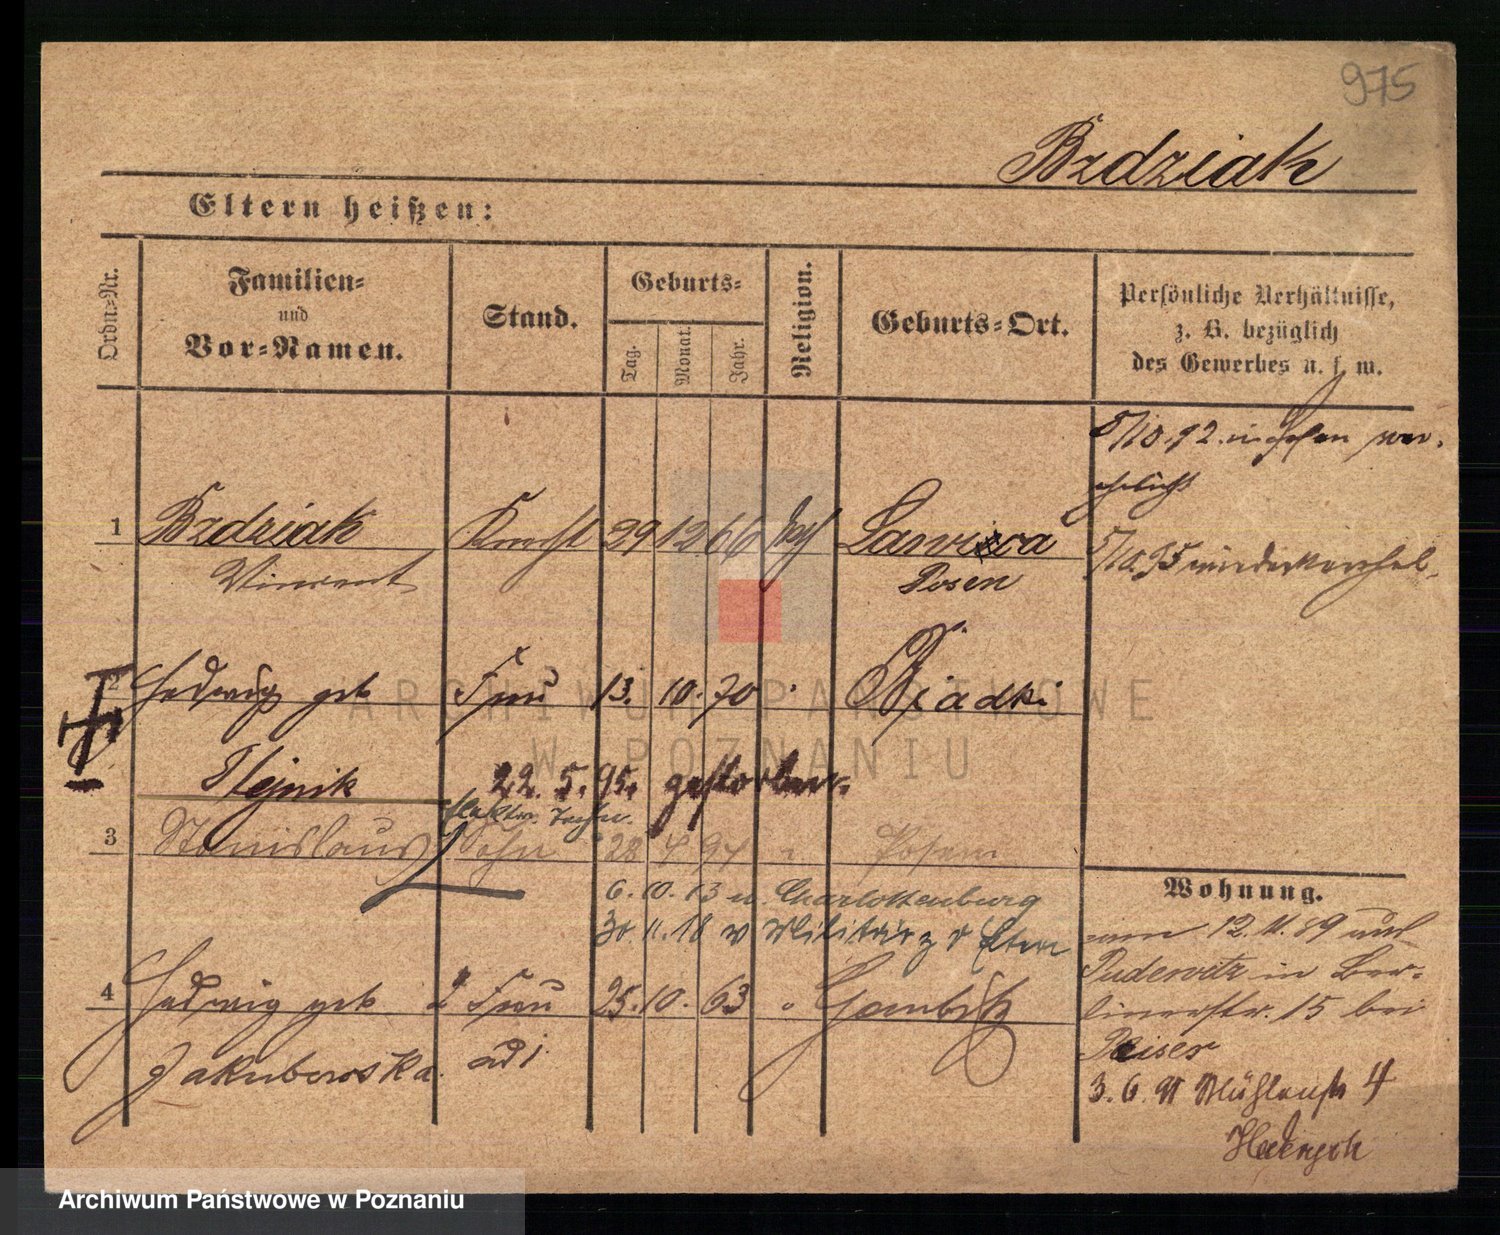 975
Bzdziak
Eltern heißen:
Ordn.=Nr.
Familien=
und
Vor=Namen.
Stand.
Geburts=
Tag.
Monat.
Jahr.
Religion.
Geburts=Ort.
Persönliche Verhältnisse,
z. B. bezüglich
des Gewerbes u. s. w.
5/10.92. in Posen ver.
ehelicht
1 Bzdziak Knecht 29 12. 66 kath Lawica
Vincent Posen
5/10.95 wiederverehel.
2 Hedwig geb Frau 13. 10. 70 Biadki
Olejnik 22. 5. 95. gestorben.
3 Stanislaus Sohn 28 4 94 " Posen
6. 10. 13 n. Charlottenburg
30 11. 18 v Militär z d Eltern
Wohnung.
12. 11. 89 aus
Pudewitz in Ber-
linerstr. 15 bei
Peiser
4 Hedwig geb 2 Frau 25. 10. 63 " Gembitz
Jakubowska.
3. 6. 91 Mühlenstr 4
ARCHIWUM PAŃSTWOWE
W POZNANIU
Archiwum Państwowe w Poznaniu